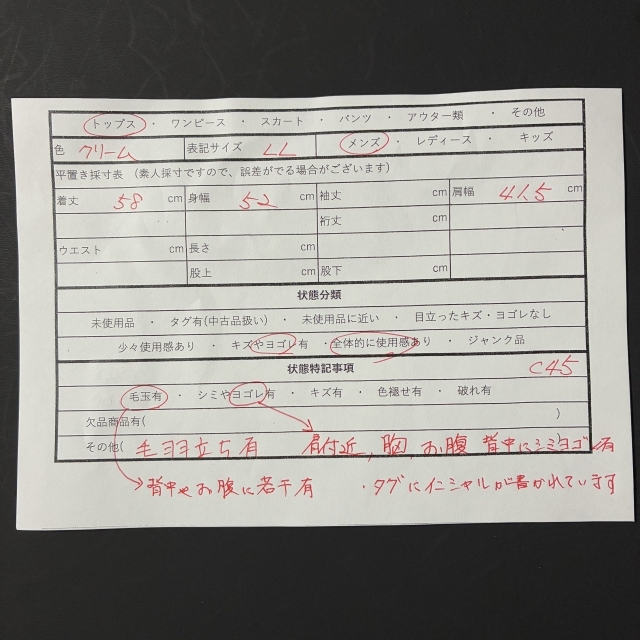 トップス ・ ワンピース ・ スカート ・ パンツ ・ アウター類 ・ その他
色 クリーム 表記サイズ LL メンズ ・ レディース ・ キッズ
平置き採寸表（素人採寸ですので、誤差がでる場合がございます）
着丈 58 cm 身幅 52 cm 袖丈 cm 肩幅 41.5 cm
裄丈 cm
ウエスト cm 長さ cm
股上 cm 股下 cm
状態分類
未使用品 ・ タグ有(中古品扱い) ・ 未使用品に近い ・ 目立ったキズ・ヨゴレなし
少々使用感あり ・ キズやヨゴレ有 ・ 全体的に使用感あり ・ ジャンク品
状態特記事項 C45
毛玉有 ・ シミやヨゴレ有 ・ キズ有 ・ 色褪せ有 ・ 破れ有
欠品商品有( )
その他( 毛羽立ち有 肩付近, 胸, お腹 背中にシミヨゴレ有 )
背中やお腹に若干有 ・タグにイニシャルが書かれています